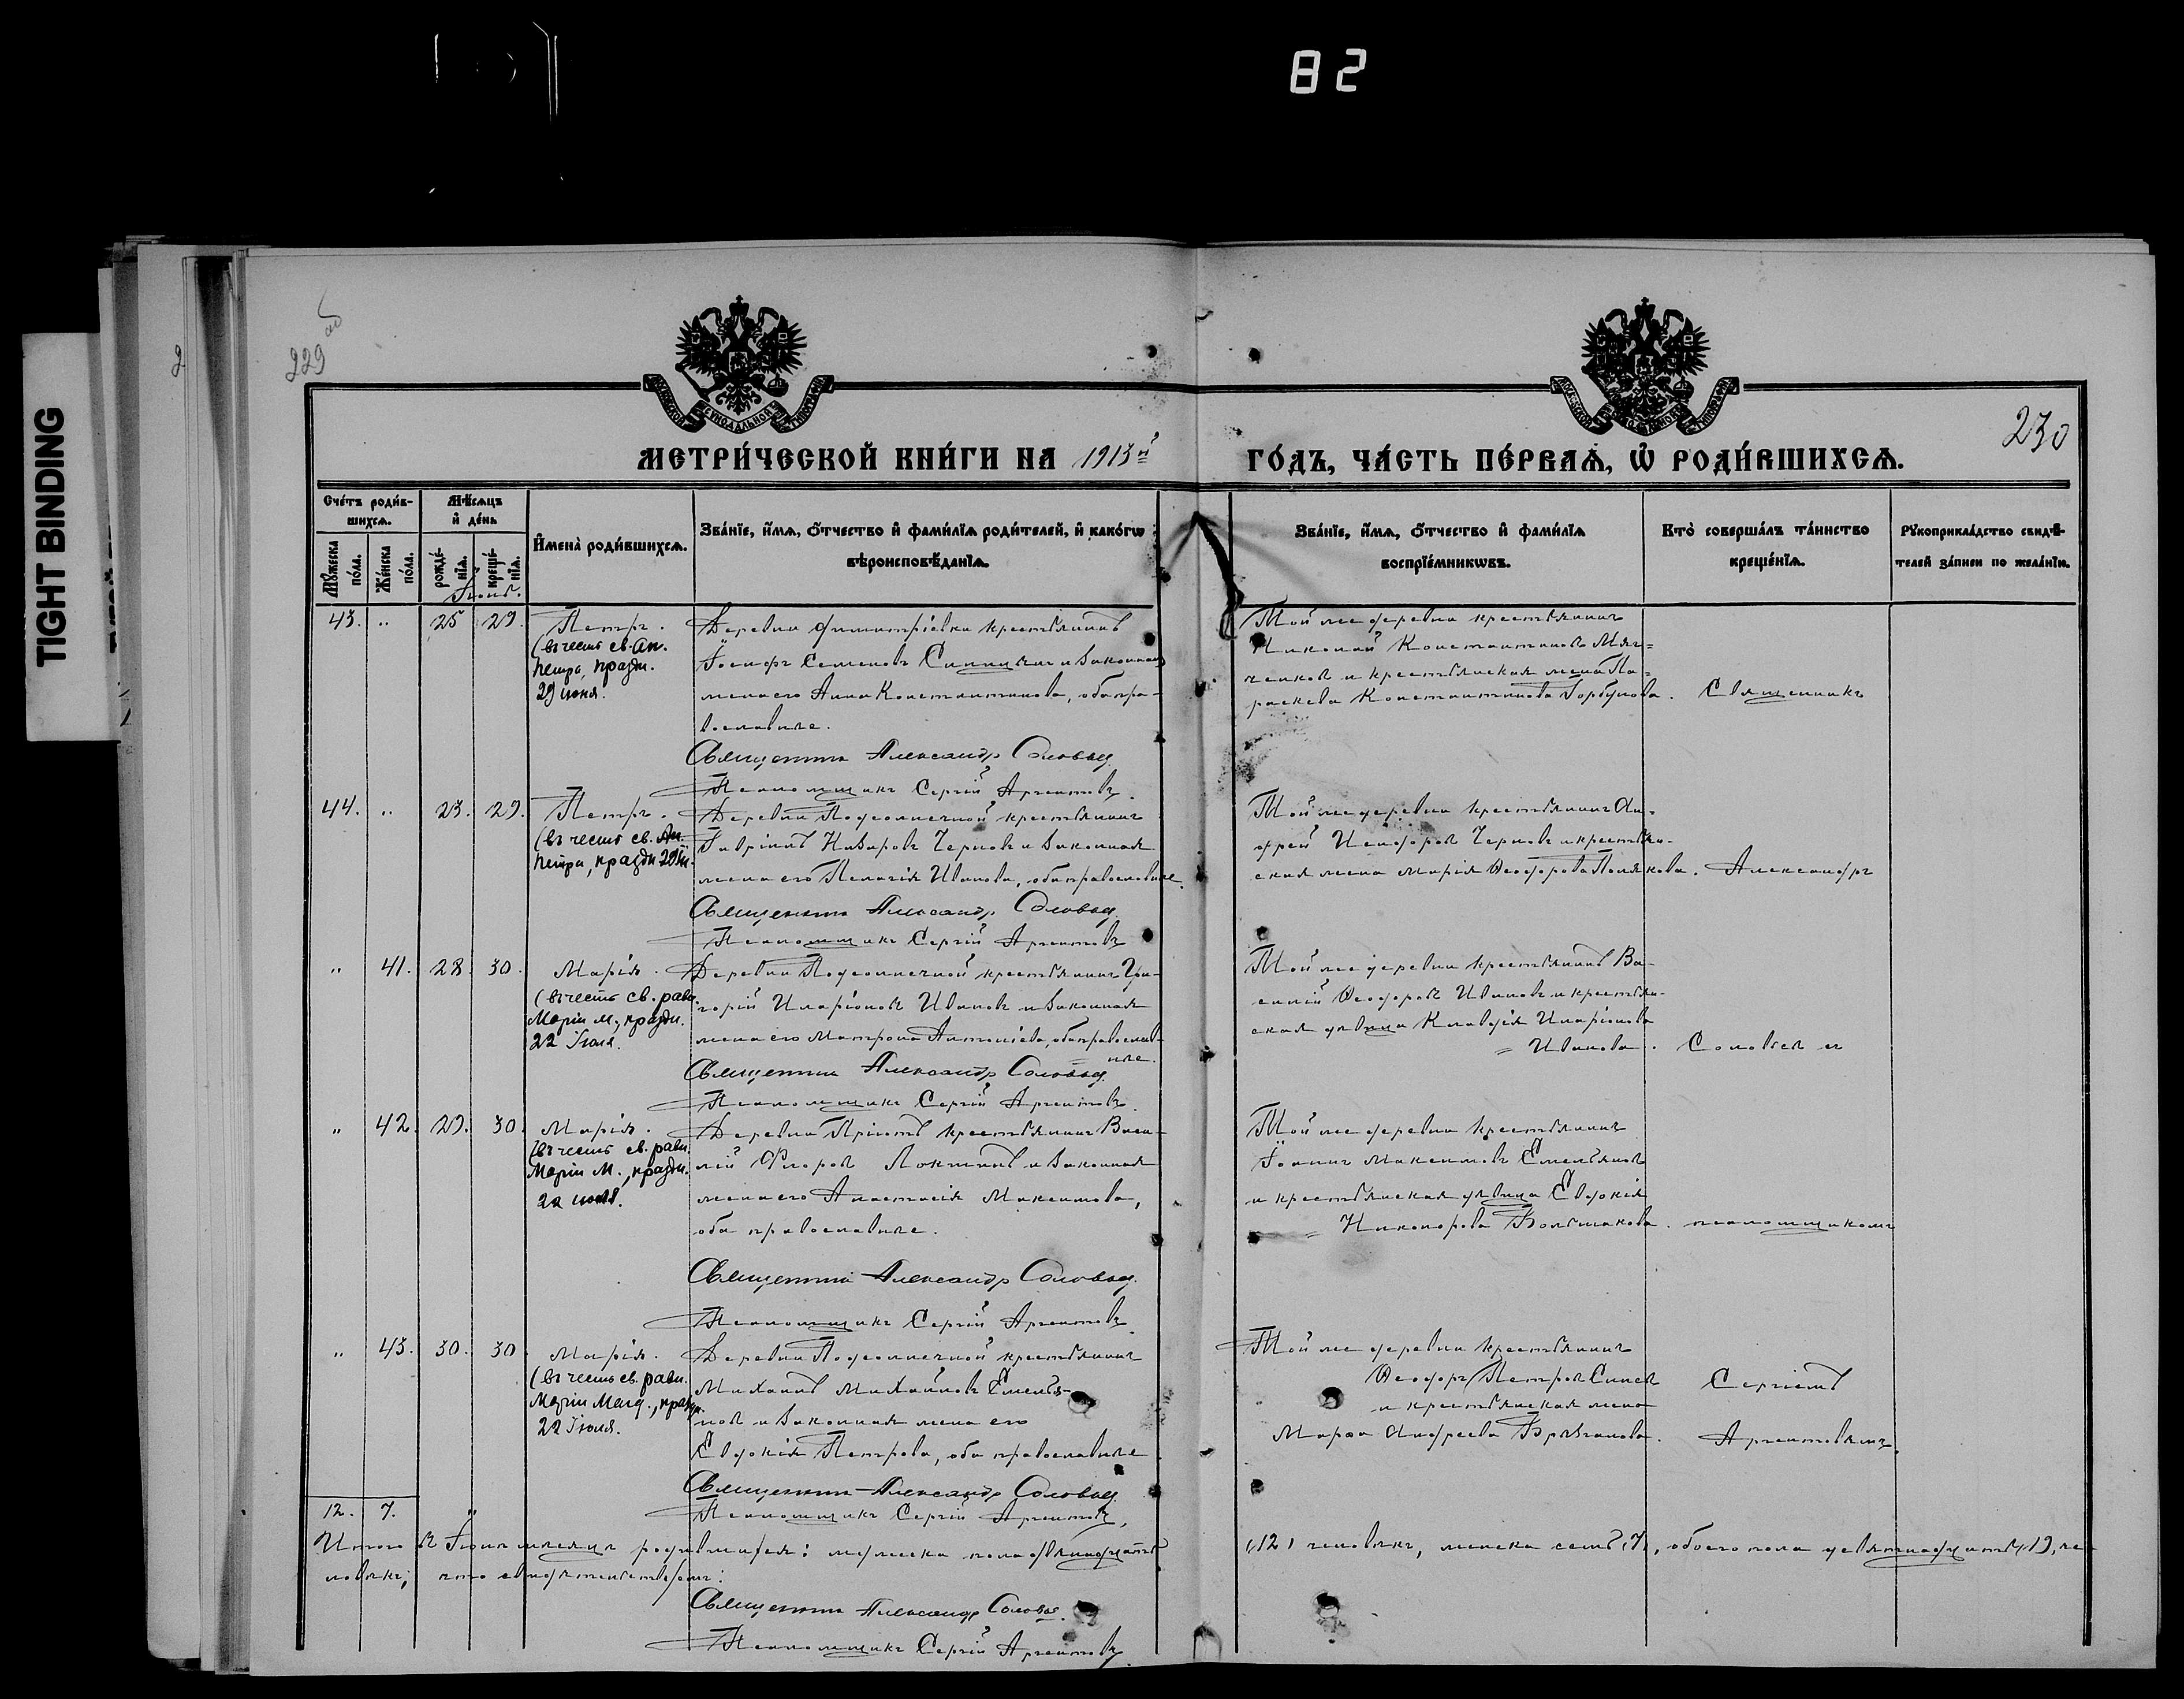 82
TIGHT BINDING
2
229 об
230
МЕТРИ́ЧЕСКОЙ КНИ́ГИ НА 1913й ГО́ДЪ, ЧА́СТЬ ПЕ́РВАЯ, Ѡ РОДИ́ВШИХСЯ.
Сче́тъ роди́в-
шихся.
Мѣ́сяцъ
и де́нь
Му́жеска
по́ла.
Же́нска
по́ла.
рожде́-
нїя.
креще́-
нїя.
Імена̀ роди́вшихся.
Зва́нїе, и́мя, о́тчество и фами́лїя роди́телей, и како́гѡ
вѣроисповѣ́данїя.
Зва́нїе, и́мя, о́тчество и фами́лїя
воспрїе́мникѡвъ.
Кто̀ соверша́лъ та́инство
креще́нїя.
Рукоприкла́дство свидѣ́-
телей за́писи по жела́нїю.
Іюнь.
43. " 25 29. Петръ.
(въ честь св. Ап.
Петра, праздн.
29 июня.
Деревни Димитріевки крестьянинъ
Іосифъ Семеновъ и законная
жена его Анна Константинова, оба пра-
вославные.
Священникъ Александр Соловьев
Псаломщикъ Сергій Аргентовъ.
Той же деревни крестьянинъ
Николай Константиновъ Мяг-
ченковъ и крестьянская жена Па-
раскева Константинова Горбунова. Священникъ
44. " 23. 29. Петръ.
(въ честь св. Ап.
Петра, праздн 29 Ін.
Деревни Подсолнечной крестьянинъ
Гавріилъ Назаровъ Черновъ и законная
жена его Пелагія Иванова, оба православные.
Священникъ Александр Соловьев
Псаломщикъ Сергій Аргентовъ
Той же деревни крестьянинъ Ан-
дрей Черновъ и крестьян-
ская жена Марія Ѳеодорова Полякова. Александръ
" 41. 28. 30. Марія.
(въ честь св. равн.
Маріи М., праздн.
22 Іюля.
Деревни Подсолнечной крестьянинъ Гри-
горій Иларіоновъ Ивановъ и законная
жена его Матрона Антоніева, оба православ-
ные.
Священникъ Александр Соловьев
Псаломщикъ Сергій Аргентовъ.
Той же деревни крестьянинъ Ва-
силій Ѳеодоровъ Ивановъ и крестьян-
ская дѣвица Клавдія Иларіонова
= Иванова. Соловьев съ
" 42. 29. 30. Марія.
(въ честь св. равн.
Маріи М., праздн.
22 июля.
Деревни крестьянинъ Васи-
лій Флоровъ Локтинъ и законная
жена его Анастасія Максимова,
оба православные.
Священникъ Александр Соловьев
Псаломщикъ Сергій Аргентовъ
Той же деревни крестьянинъ
Іоаннъ Максимовъ Емельяновъ
и крестьянская дѣвица Евдокія
= Никонорова Большакова. псаломщикомъ
" 43. 30. 30 Марія.
(въ честь св. равн.
Маріи Магд., праздн.
22 Іюля.
Деревни Подсолнечной крестьянинъ
Михаилъ Михайловъ Емелья-
новъ и законная жена его
Евдокія Петрова, оба православные
Священникъ Александр Соловьев
Псаломщикъ Сергій Аргентовъ,
Той же деревни крестьянинъ
Ѳеодоръ Петровъ Синев
и крестьянская жена
Марѳа Андреева. Сергіемъ
Аргентовымъ.
12. 7. "
Итого въ Іюнѣ мѣсяцѣ родившихся: мужеска пола двѣнадцать (12) человѣкъ, женска семь (7), обоего пола девятнадцать (19), че-
ловѣкъ; что свидѣтельствуемъ:
Священникъ Александр Соловьев.
Псаломщикъ Сергій Аргентовъ.